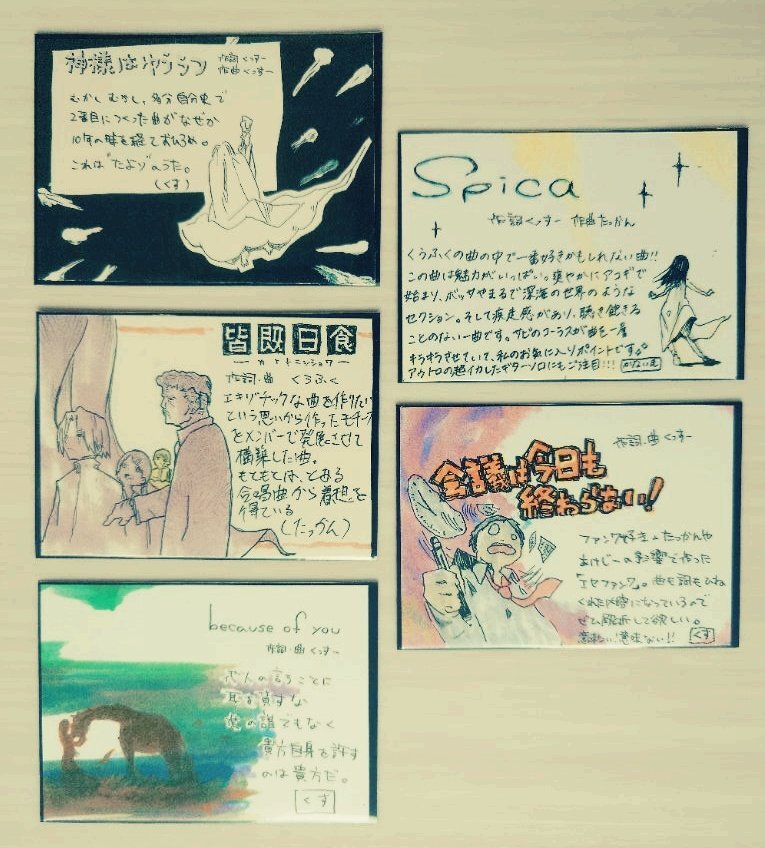 神様はゆううつ
作詞 くっすー
作曲 くっすー
むかし むかし、多分自分史で
2番目につくった曲がなぜか
10年の時を経ておひろめ。
これは"たより"のうた。
(くす)
皆既日食
作詞・曲 くうふく
エキゾチックな曲を作りたい
という思いから作ったモチーフ
をメンバーで発展させて
構築した曲。
もともとは、とある
合唱曲から着想を
得ている
(たっかん)
because of you
作詞・曲 くっすー
他人の言うことに
耳を貸すな
他の誰でもなく
貴方自身を許す
のは貴方だ。
くす
Spica
作詞 くっすー 作曲 たっかん
くうふくの曲の中で一番好きかもしれない曲!!
この曲は魅力がいっぱい。爽やかにアコギで
始まり、ボッサやまるで深海の世界のような
セクション。そして疾走感があり、聴き飽きる
ことのない一曲です。サビのコーラスが曲を一層
キラキラさせていて、私のお気に入りポイントです。
アウトロの超イカしたギターソロにもご注目!!!
会議は今日も
終わらない!
作詞・曲 くっすー
ファンク好き たっかんや
あけじーの影響で作った
「エセファンク」。曲も詞もひね
くれた感じになっているので
ぜひ解析して欲しい。
意味ない!!
くす